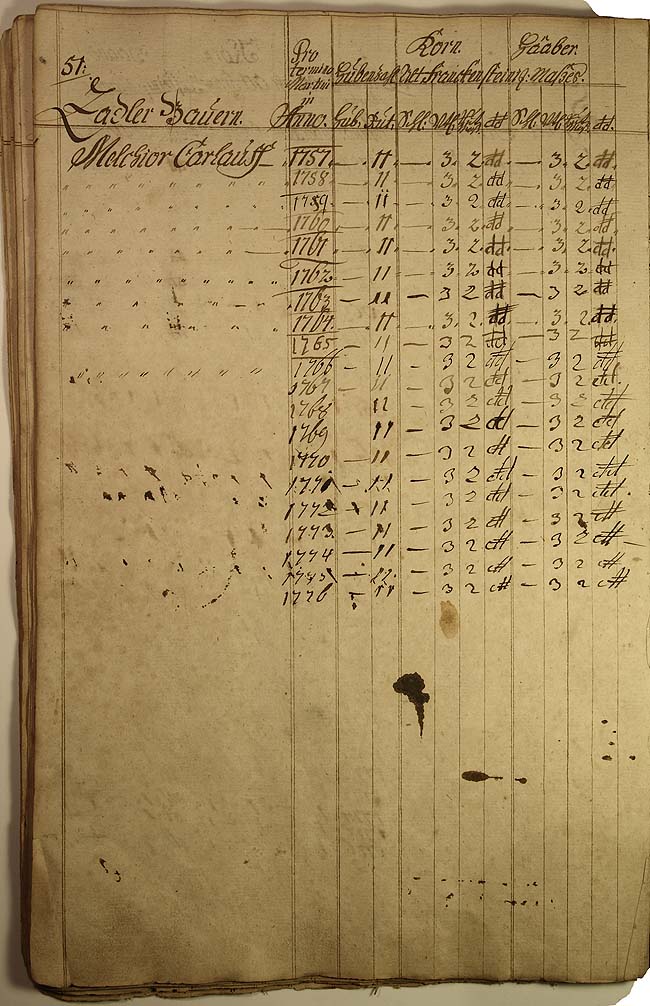 51.
Pro termino Martini in Anno.
Korn. Haaber
Zadler Bauern.
Melchior Carlauff 1757. — 11 — 3. 2 dd — 3. 2 dd
1758 — 11 — 3 2 dd — 3 2 dd
1759 — 11 — 3 2 dd — 3 2 dd
1760 — 11 — 3. 2 dd — 3. 2 dd
1761 — 11 — 3. 2 dd — 3. 2 dd
1762 — 11 — 3 2 dd — 3. 2 dd
1763 — 11 — 3 2 dd — 3 2 dd
1764 — 11 — 3. 2. dd — 3. 2. dd
1765 — 11 — 3 2 dd — 3 2 dd
1766 — 11 — 3 2 dd — 3 2 dd
1767 — 11 — 3 2 dd — 3 2 dd
1768 11 — 3 2 dd — 3 2 dd
1769 11 — 3 2 dd — 3 2 dd
1770 — 11 — 3 2 dd — 3 2 dd
1771 — 11 — 3 2 dd — 3 2 dd
1772 — 11 — 3 2 dd — 3 2 dd
1773 — 11 — 3 2 dd — 3 2 dd
1774 — 11 — 3 2 dd — 3 2 dd
1775 — 11. — 3 2 dd — 3 2 dd
1776 — 11 — 3 2 dd — 3 2 dd